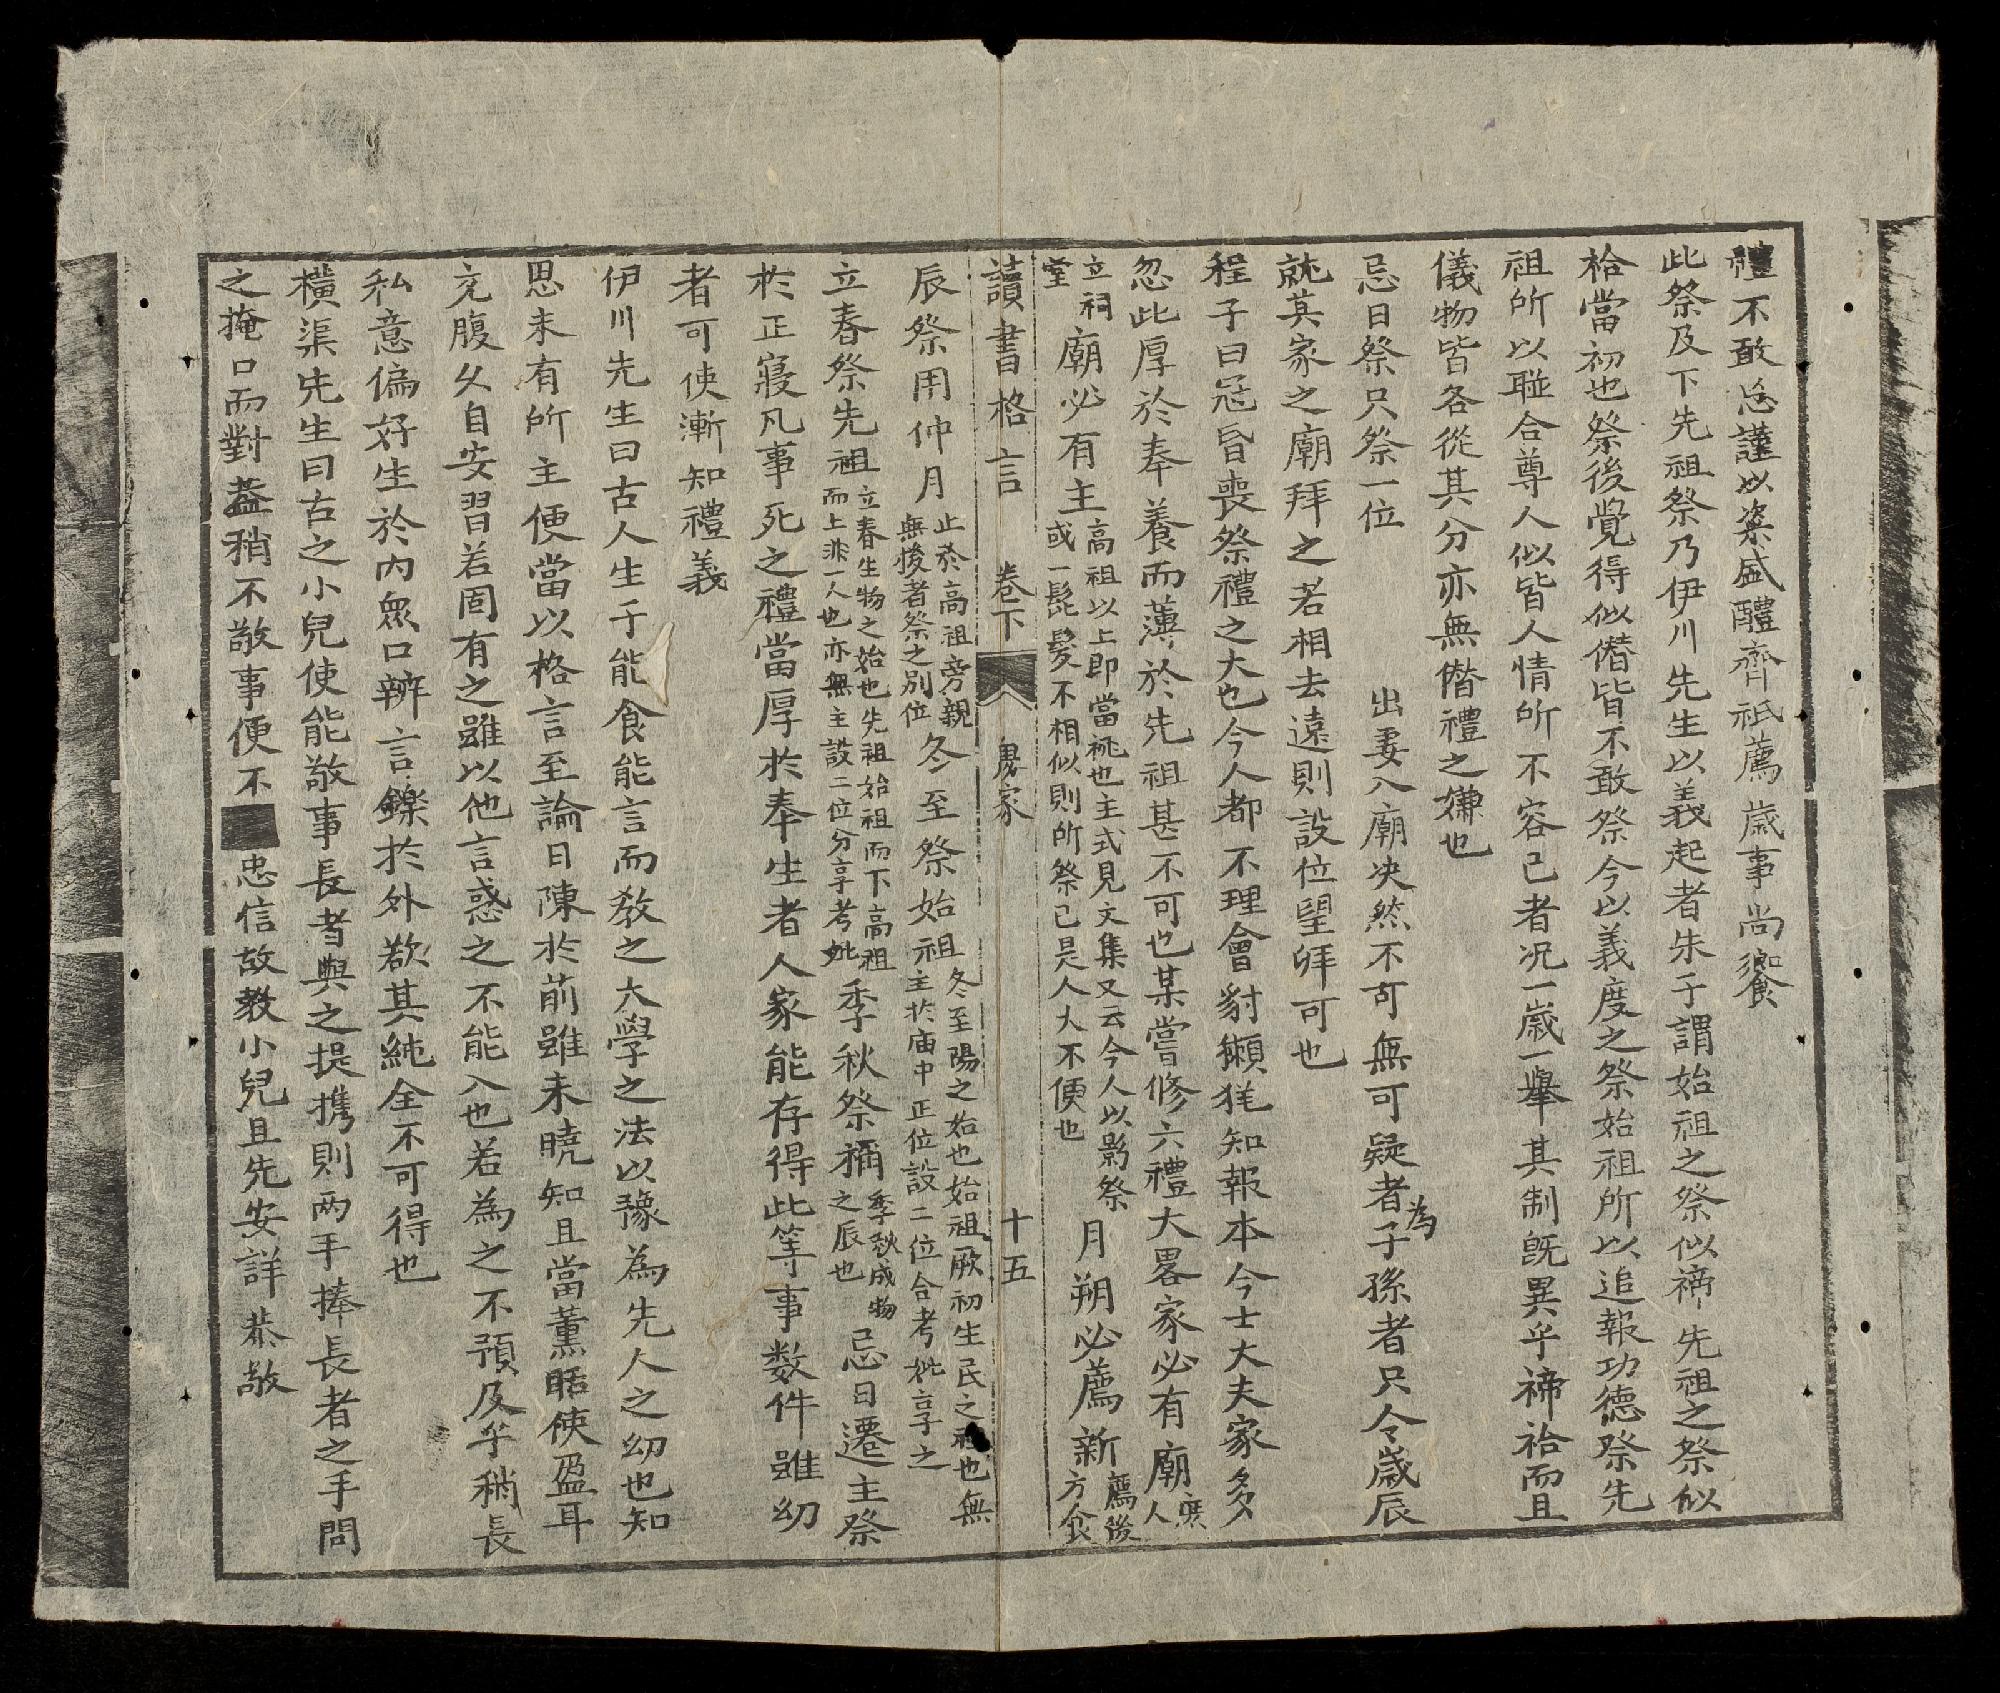 禮不敢忘謹以粢盛醴齊祗薦歲事尚饗
此祭及下先祖祭乃伊川先生以義起者朱子謂始祖之祭似禘先祖之祭似
祫當初也祭後覺得似僭皆不敢祭今以義度之祭始祖所以追報功德祭先
祖所以聫合尊人似皆人情所不容已者况一歲一舉其制旣異乎禘祫而且
儀物皆各從其分亦無僭禮之嫌也
忌日祭只祭一位　出妻入廟决然不可無可疑者為子孫者只令歲辰
就其家之廟拜之若相去遠則設位望拜可也
程子曰冠昏喪祭禮之大也今人都不理會豺獺猶知報本今士大夫家多
忽此厚於奉養而薄於先祖甚不可也某嘗修六禮大畧家必有廟庶人
立祠堂廟必有主高祖以上即當祧也主式見文集又云今人以影祭
或一髭髮不相似則所祭已是人大不便也月朔必薦新薦後方食
讀書格言　卷下　處家　十五
辰祭用仲月止於高祖旁親無後者祭之別位冬至祭始祖冬至陽之始也始祖厥初生民之祖也無
主於庙中正位設二位合考妣享之
立春祭先祖立春生物之始也先祖始祖而下高祖而上非一人也亦無主設二位分享考妣季秋祭禰季秋成物之辰也忌日遷主祭
於正寢凡事死之禮當厚於奉生者人家能存得此等事数件雖幼
者可使漸知禮義
伊川先生曰古人生子能食能言而教之大學之法以豫為先人之幼也知
思未有所主便當以格言至論日陳於前雖未曉知且當薰聒使盈耳
充腹久自安習若固有之雖以他言惑之不能入也若為之不預及乎稍長
私意偏好生於內眾口辨言鑠於外欲其純全不可得也
橫渠先生曰古之小兒使能敬事長者與之提携則两手捧長者之手問
之掩口而對葢稍不敬事便不忠信故教小兒且先安詳恭敬